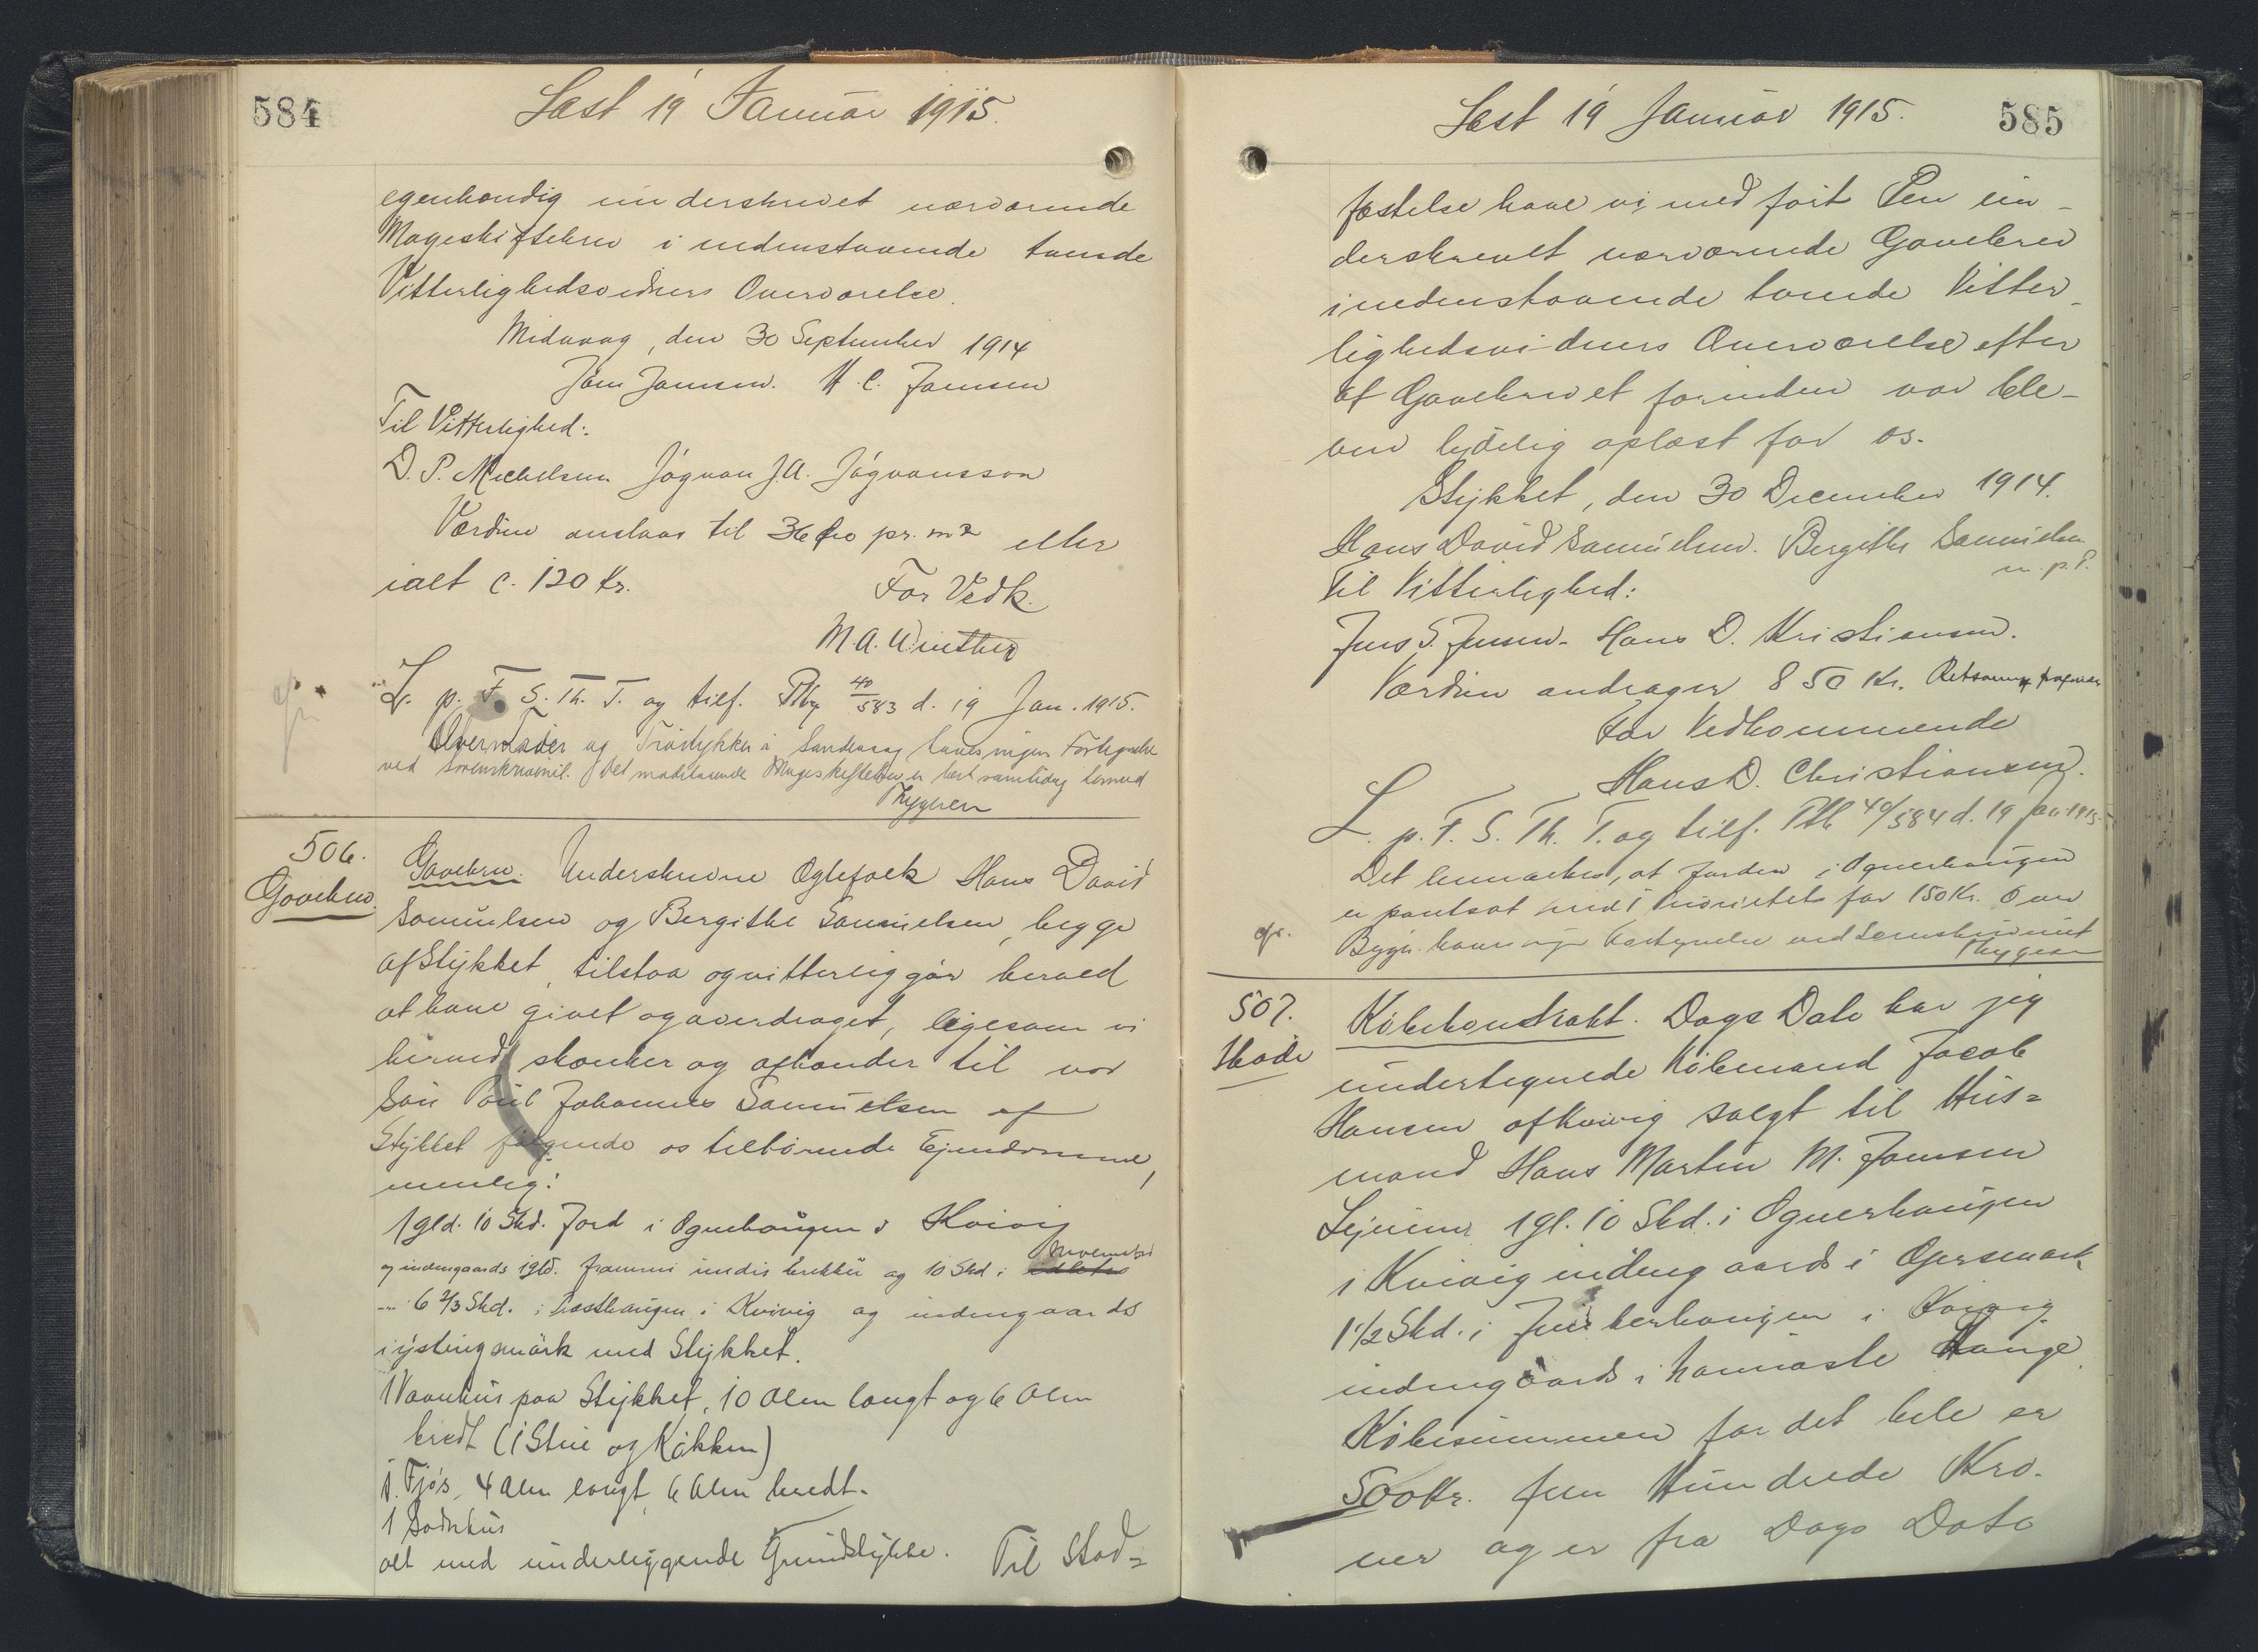 584
Læst 19 Januar 1915.
egenhændig underskrevet nærværende
Mageskiftebrev i nedenstaaende tvende
Vitterlighedsvidners Overværelse.
Midvaag, den 30 September 1914
Joen Joensen. H. C. Joensen
Til Vitterlighed:
D. P. Michelsen Jógvan J.A. Jógvansson
Værdien anslaas til 36 Øre pr. m2 eller
ialt c. 120 Kr.
For Vedk.
M. A. Winther
L. p. F. S. Th. T. og tilf. Ptbg 40/583 d. 19 Jan. 1915.
og i Sandevaag haves ingen Fortegnelse
ved Sorenskriverit. Det modstaaende Mageskiftebrev er læst samtidig hermed
Thygesen
506.
Gavebrev.
Gavebrev. Underskrevne Ægtefolk Hans David
Samuelsen og Bergithe Samuelsen, begge
af Stykket, tilstaa og vitterliggør herved
at have givet og overdraget, ligesom vi
herved skænker og afhænder til vor
Søn Poul Johannes Samuelsen af
Stykket følgende os tilhørende Ejendomme,
nemlig:
1 Gld. 10 Skd. Jord i Ognerhaugen i Kvivig
og indengaards 1 gld. frammi undir brekku og 10 Skd. i
6 2/3 Skd. i Præsthaugen i Kvivig og indengaards
i ýstingsmørk med Stykket.
1 Vaanhus paa Stykket, 10 Alen langt og 6 Alen
bredt (1 Stue og Køkken)
1 Fjós, 4 Alen langt, 6 Alen bredt.
1 Sodnhus
alt med underliggende Grundstykke. Til Stad=
Læst 19 Januar 1915.
585
fæstelse have vi med ført Pen un-
derskrevet nærværende Gavebrev
i nedenstaaende tvende Vitter-
lighedsvidners Overværelse efter
at Gavebrevet forinden var ble-
ven lydelig oplæst for os.
Stykket, den 30 December 1914.
Hans David Samuelsen. Bergithe Samuelsen
m. p. P.
Til Vitterlighed:
Jens S. Jensen. Hans D. Kristiansen.
Værdien andrager 850 Kr.
For Vedkommende
Hans D. Christiansen.
L. p. F. S. Th. T. og tilf. Ptb 40/584 d. 19 Jan 1915.
Det bemærkes, at Jorden i Ognerhaugen
er pantsat med 1 Prioritet for 150 Kr. Over
Bygn. haves ingen Fortegnelse ved Sorenskriverit
Thygesen
507.
Skøde
Købekontrakt. Dags Dato har jeg
undertegnede Købmand Jacob
Hansen af Kvivig solgt til Hus=
mand Hans Martin M. Joensen
Lejnum 1 gl. 10 Skd. i Ognerhaugen
i Kvivig indengaards i Gjersmark
1 1/2 Skd. i Junkerhaugen i Kvivig
indengaards i hannaste Hauge
Købesummen for det hele er
500 Kr. fem Hundrede Kro-
ner og er fra Dags Dato